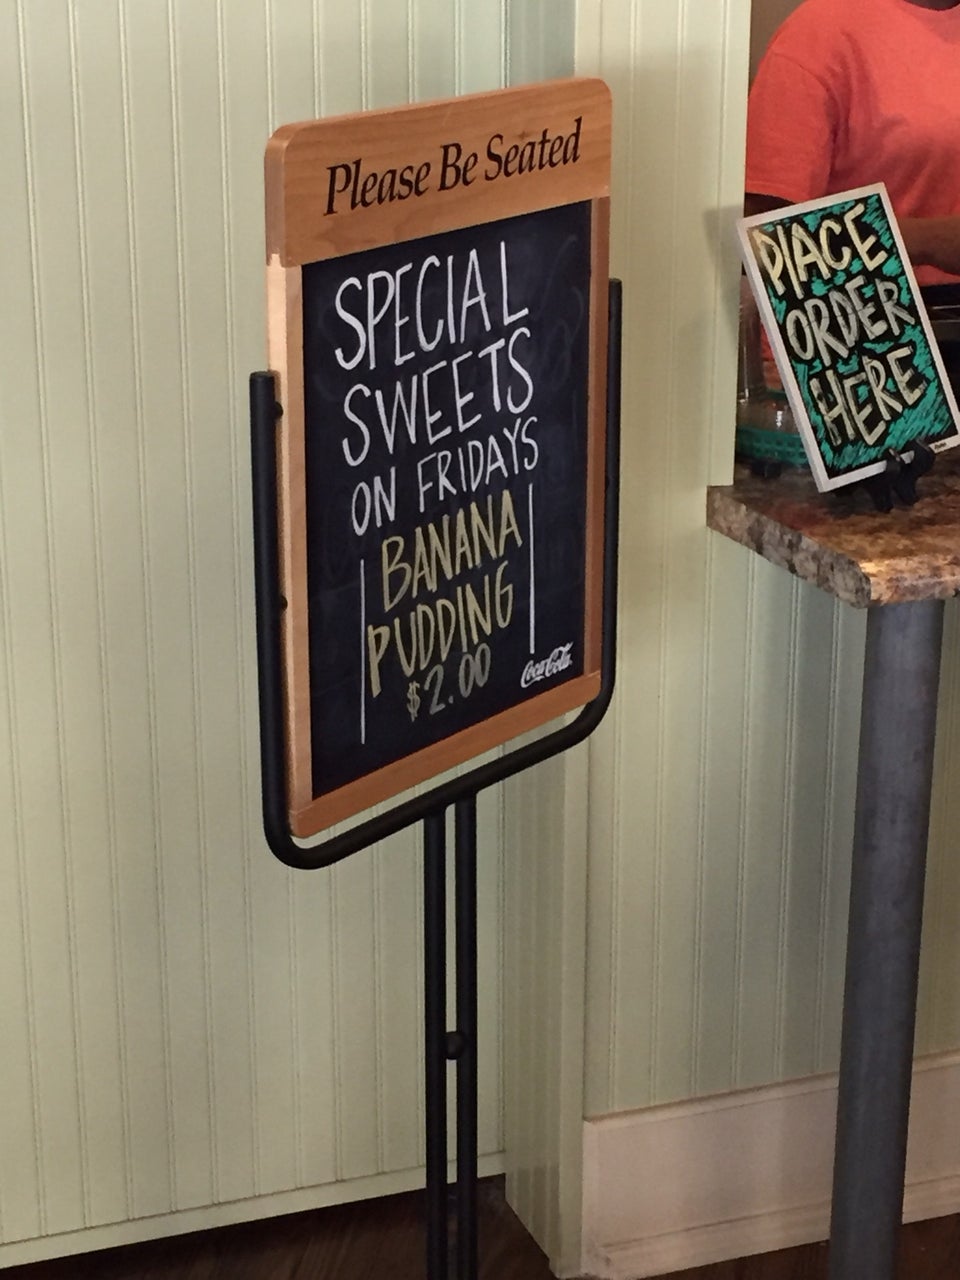 Please Be Seated
SPECIAL
SWEETS
ON FRIDAYS
BANANA
PUDDING
$2.00
Coca-Cola
PlACE
ORDER
HERE